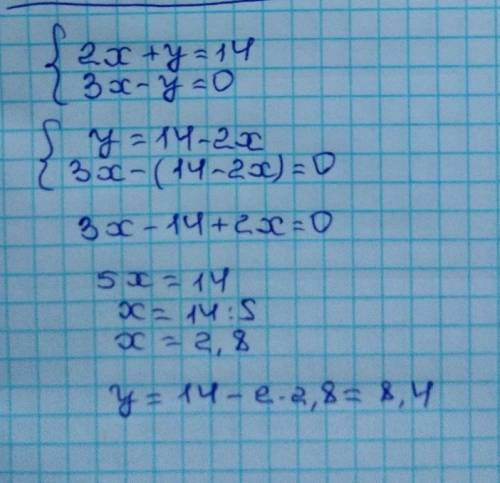 2x + y = 14
3x - y = 0
y = 14 - 2x
3x - (14 - 2x) = 0
3x - 14 + 2x = 0
5x = 14
x = 14 : 5
x = 2,8
y = 14 - 2 · 2,8 = 8,4